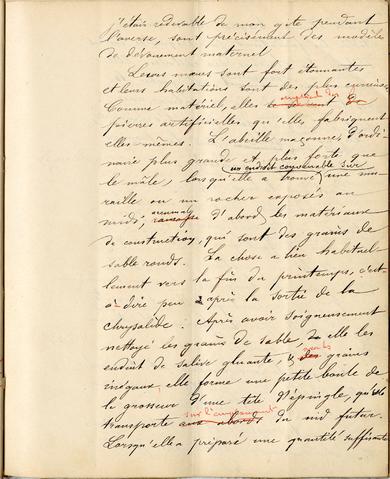 j'étais redevable de mon gîte pendant
l'averse, sont précisément des modèles
de dévouement maternel
Leurs mœurs sont fort étonnantes
et leurs habitations sont des plus curieuses
emploient des
Comme matériel, elles
pierres artificielles qu'elles fabriquent
elles-mêmes. L'abeille maçonne, d'ordi-
naire plus grande et plus forte que
un endroit convenable sur
le mâle, lorsqu'elle a trouvé une mu-
raille ou un rocher exposés au
midi, ramasse d'abord les matériaux
de construction, qui sont des grains de
sable ronds. La chose a lieu habituel-
lement vers la fin du printemps, c'est-
à-dire peu après la sortie de la
chrysalide. Après avoir soigneusement
nettoyé les grains de sable, elle les
enduit de salive gluante, & des grains
inégaux, elle forme une petite boule de
la grosseur d'une tête d'épingle, qu'elle
sur l'emplacement
transporte aux abords du nid futur.
Lorsqu'elle a préparé une quantité suffisante